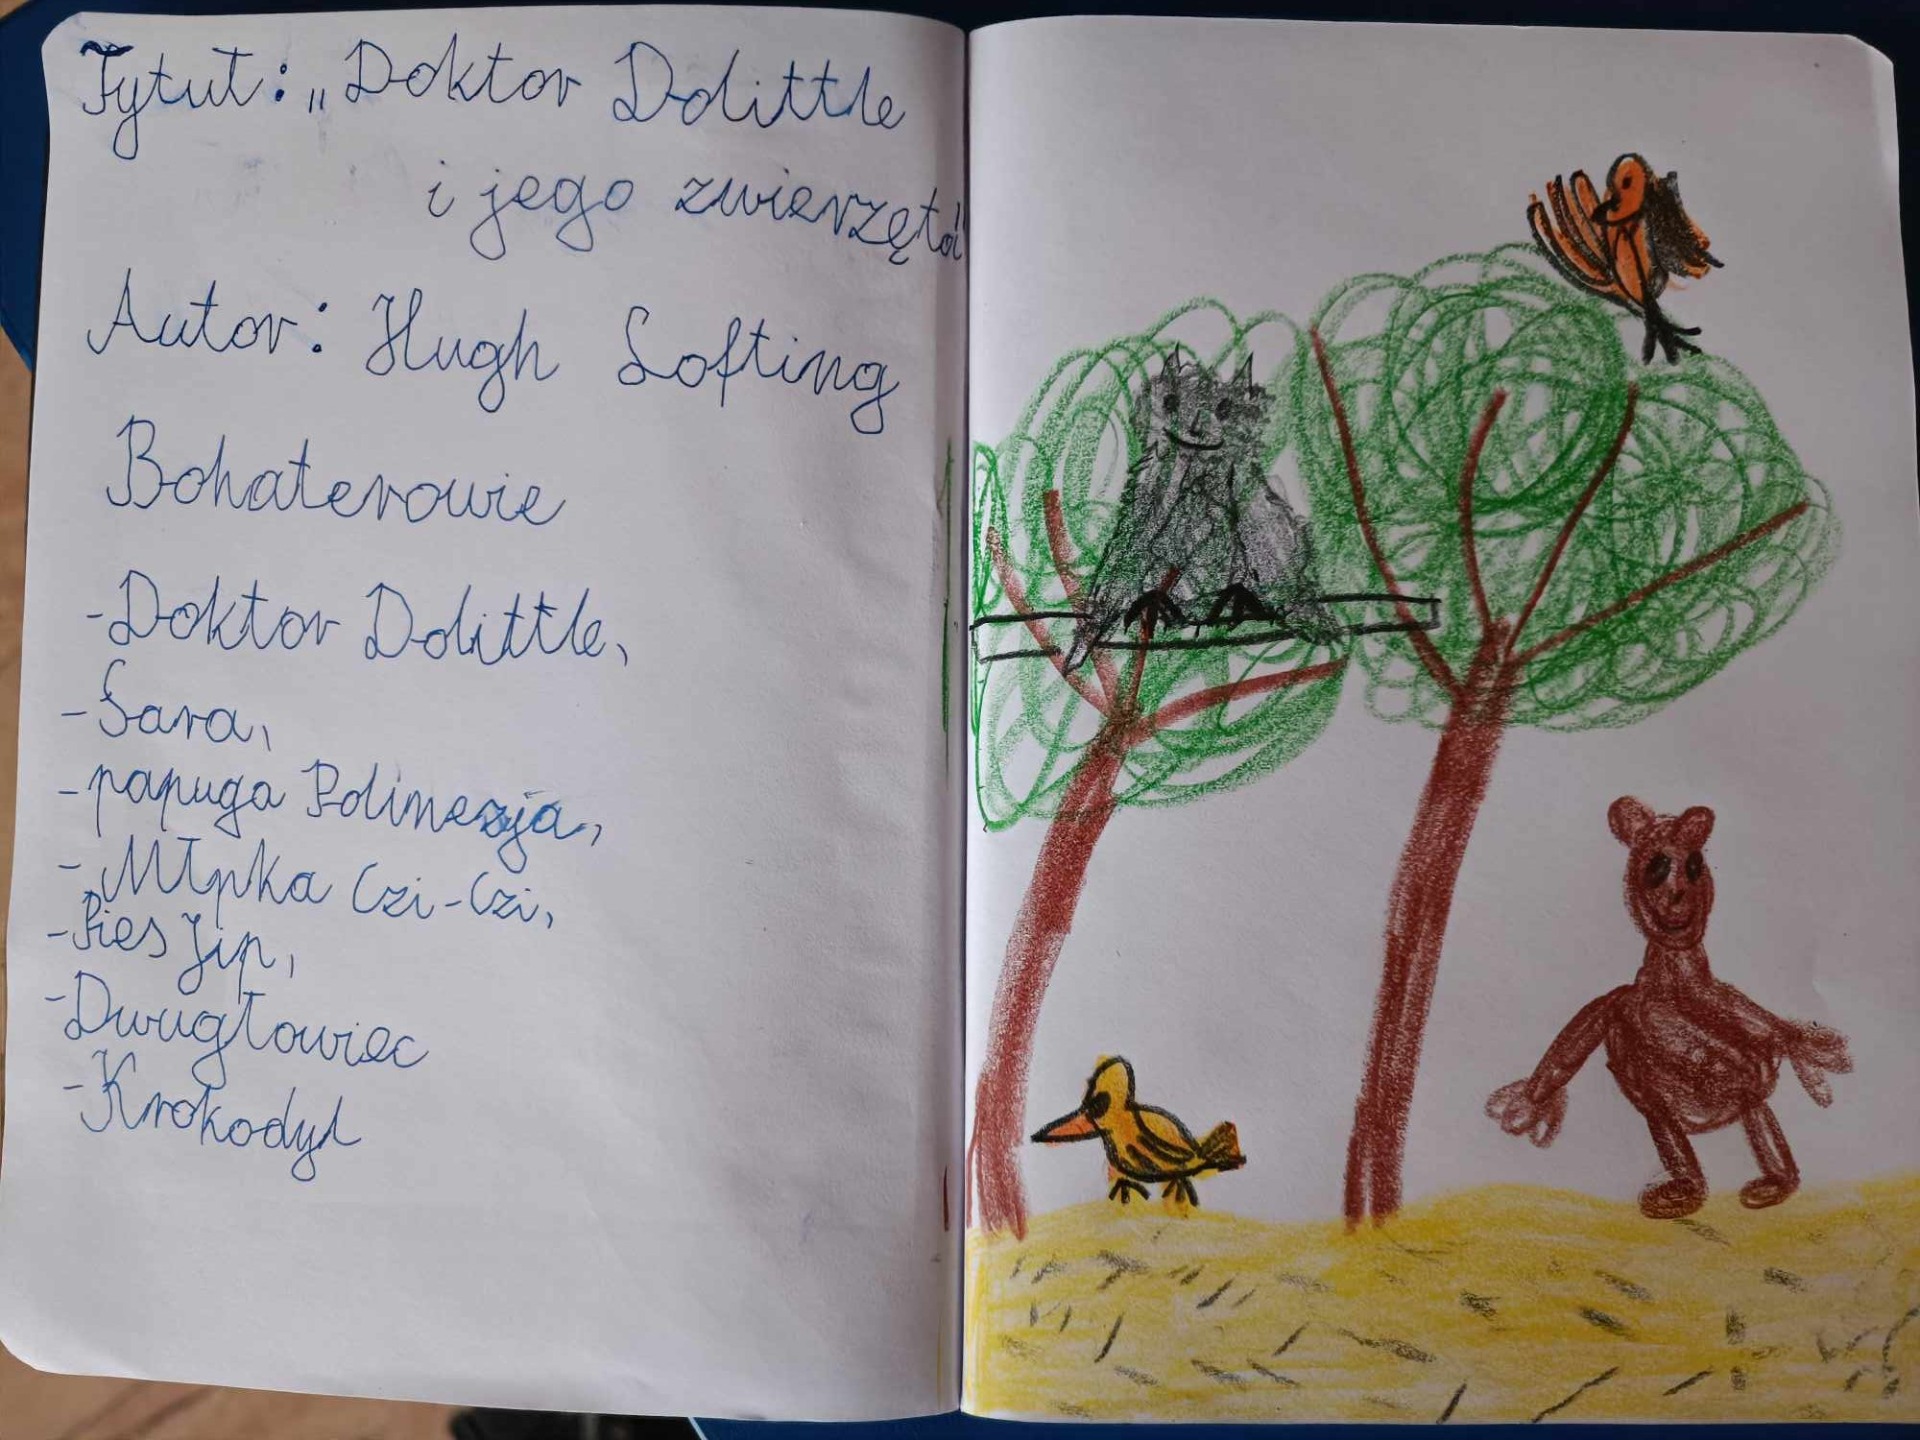 Tytuł: „Doktor Dolittle
i jego zwierzęta"
Autor: Hugh Lofting
Bohaterowie
-Doktor Dolittle,
-Sara,
-papuga Polinezja,
-Młpka Czi-Czi,
-Pies Jip,
-Dwugłowiec
-Krokodyl